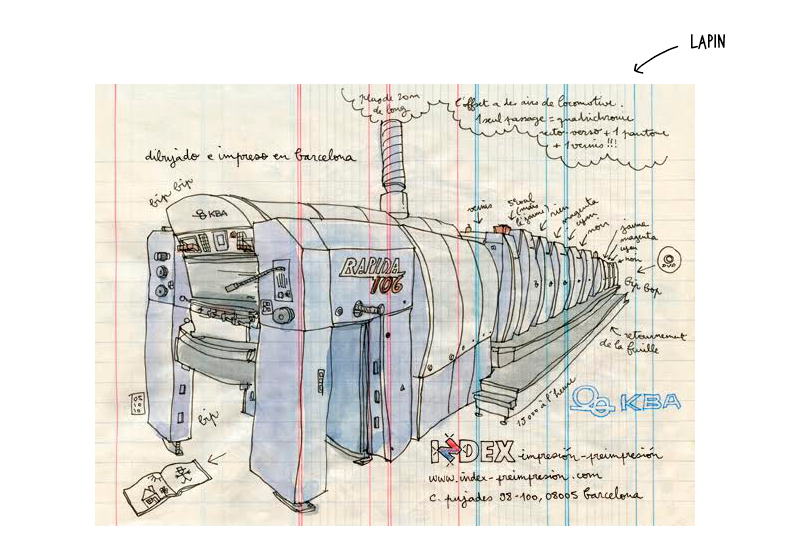 LAPIN
plus de 20m
de long
l'offset a des airs de locomotive.
1 seul passage = quadrichromie
recto-verso + 1 pantone
+ 1 vernis !!!
dibujado e impreso en barcelona
bip bip
KBA
vernis
(mais
magenta
cyan
noir
jaune
magenta
cyan
noir
DVD
RAPIDA
106
bip bop
retournement
de la feuille
15000 à l'heure
KBA
bip
INDEX - impresión - preimpresión
www.index-preimpresion.com
C. pujades 98-100, 08005 barcelona